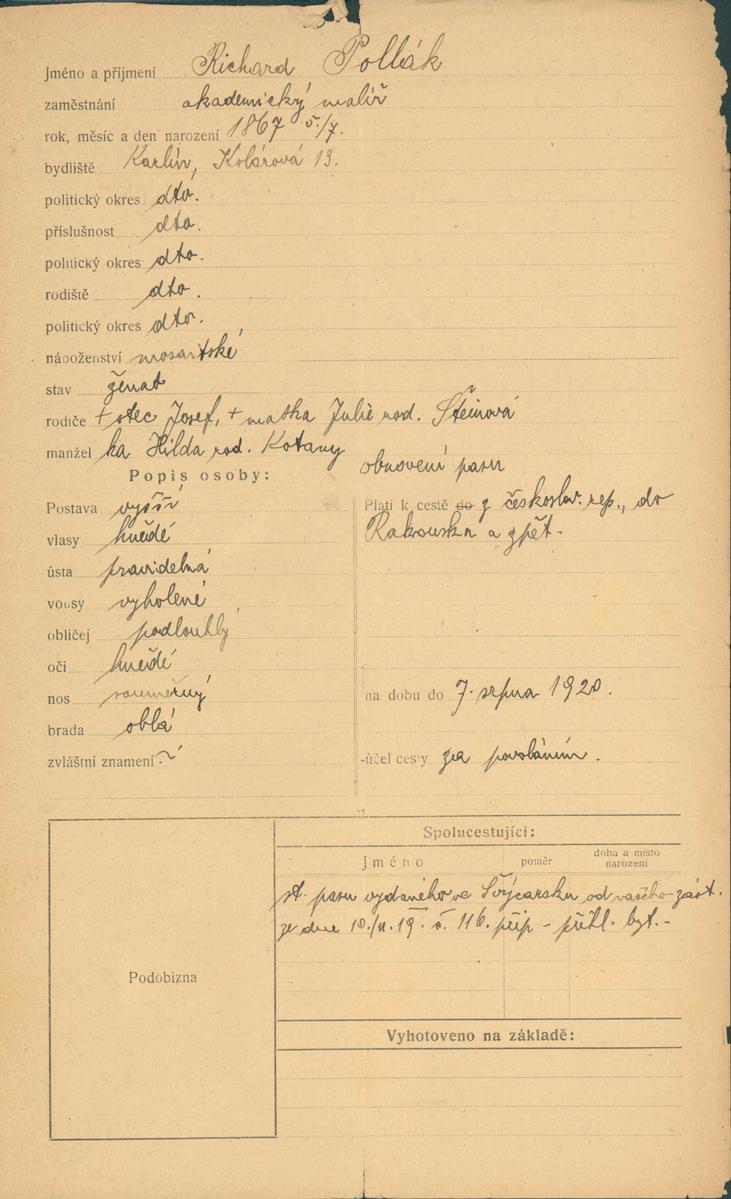 Jméno a příjmení Richard Pollák
zaměstnání akademický malíř
rok, měsíc a den narození 1867 5./7.
bydliště Karlín, Kolárová 13.
politický okres dto.
příslušnost dto.
politický okres dto.
rodiště dto.
politický okres dto.
náboženství mosaitské
stav ženat
rodiče + otec Josef, + matka Julie rod. Šteinová
manžel ka Hilda rod. Kotany
Popis osoby:
obnovení pasu
Postava vyšší
Platí k cestě do z českoslov. rep., do
vlasy hnědé
Rakouska a zpět.
ústa pravidelná
vousy vyholené
obličej podlouhlý
oči hnědé
nos souměrný
na dobu do 7. srpna 1920.
brada oblá
zvláštní znamení
účel cesty za povoláním.
Spolucestující:
Jméno poměr doba a místo narození
st. pasu vydaného ve Švýcarsku od našeho zást.
ze dne 10./II.19. č. 116. přip - přihl. byt. -
Podobizna
Vyhotoveno na základě: